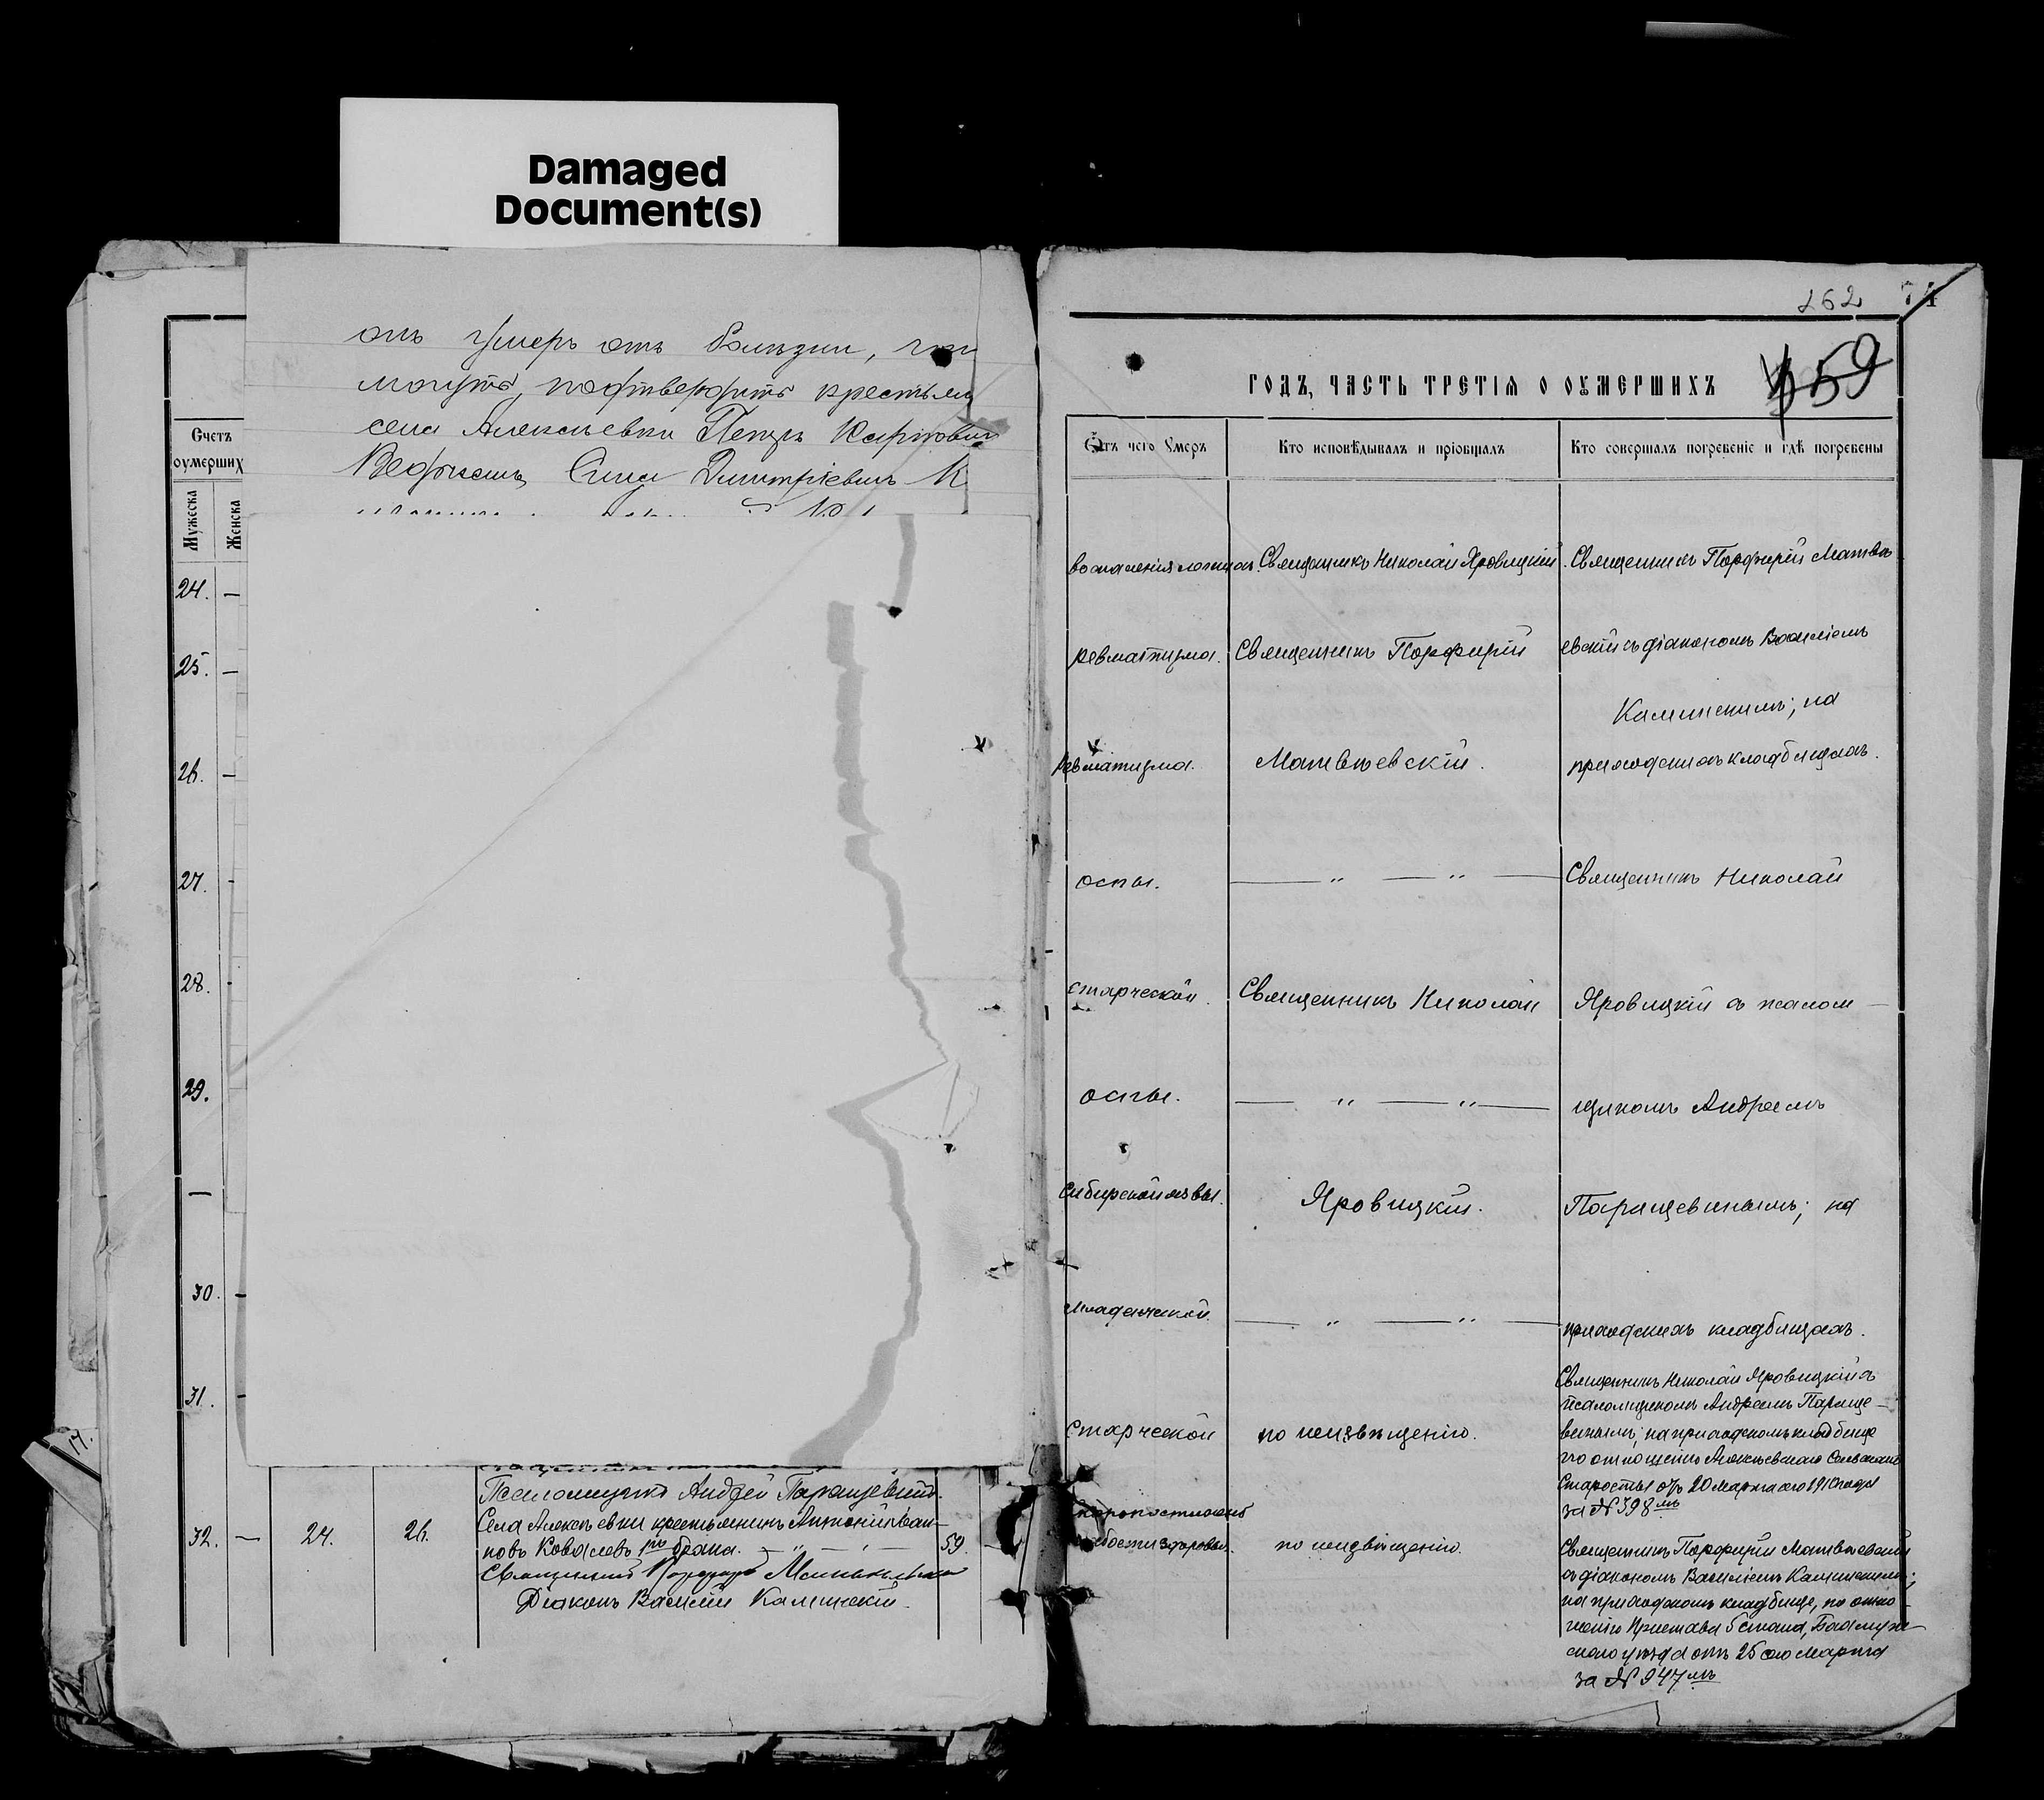 Damaged
Document(s)
онъ умеръ отъ болѣзни,
могутъ подтвердить крестьяне
села Алексѣевки Петръ Карповичъ
Дмитріевичъ
Счетъ
оумерших
Мужеска
Женска
24. —
25. —
26. —
27. -
28. -
29.
—
30. -
31. -
Псаломщикъ Андрей Паращевинъ.
32. — 24. 26. Села Алексѣевки крестьянинъ Антоній Иван-
новъ Ковалевъ 1го брака. — " — 59. —
Священникъ Порфирій Матвѣевскій
Діаконъ Василій Каминскій.
17.
262 74
459
ГОДЪ, ЧАСТЬ ТРЕТІЯ О ОУМЕРШИХЪ
Отъ чего Умеръ
Кто исповѣдывалъ и пріобщалъ
Кто совершалъ погребеніе и гдѣ погребены
воспаленія легкихъ. Священникъ Николай Яровицкій. Священникъ Порфирій Матвѣ-
ревматизма. Священникъ Порфирій евскій съ діакономъ Василіемъ
Каминскимъ; на
ревматизма. Матвѣевскій. приходскихъ кладбищахъ.
оспы. — " — " — Священникъ Николай
старческой. Священникъ Николай Яровицкій съ псалом-
оспы. — " — " — щикомъ Андреемъ
сибирской язвы. Яровицкій. Паращевинымъ; на
младенческой. — " — " — приходскихъ кладбищахъ.
Священникъ Николай Яровицкій съ
псаломщикомъ Андреемъ Параще-
старческой по неизвѣщенію. винымъ; на приходскомъ кладбищѣ
по отношенію Алексѣевскаго Сельскаго
Старосты отъ 20 Марта сего 191 года
за № 398мъ
скоропостижно
слабости здоровья. по неизвѣщенію. Священникъ Порфирій Матвѣевскій
съ діакономъ Василіемъ Каминскимъ;
на приходскомъ кладбищѣ, по отно-
шенію Пристава 5 стана, Бахмут-
скаго уѣзда отъ 25 сего Марта
за № 947мъ